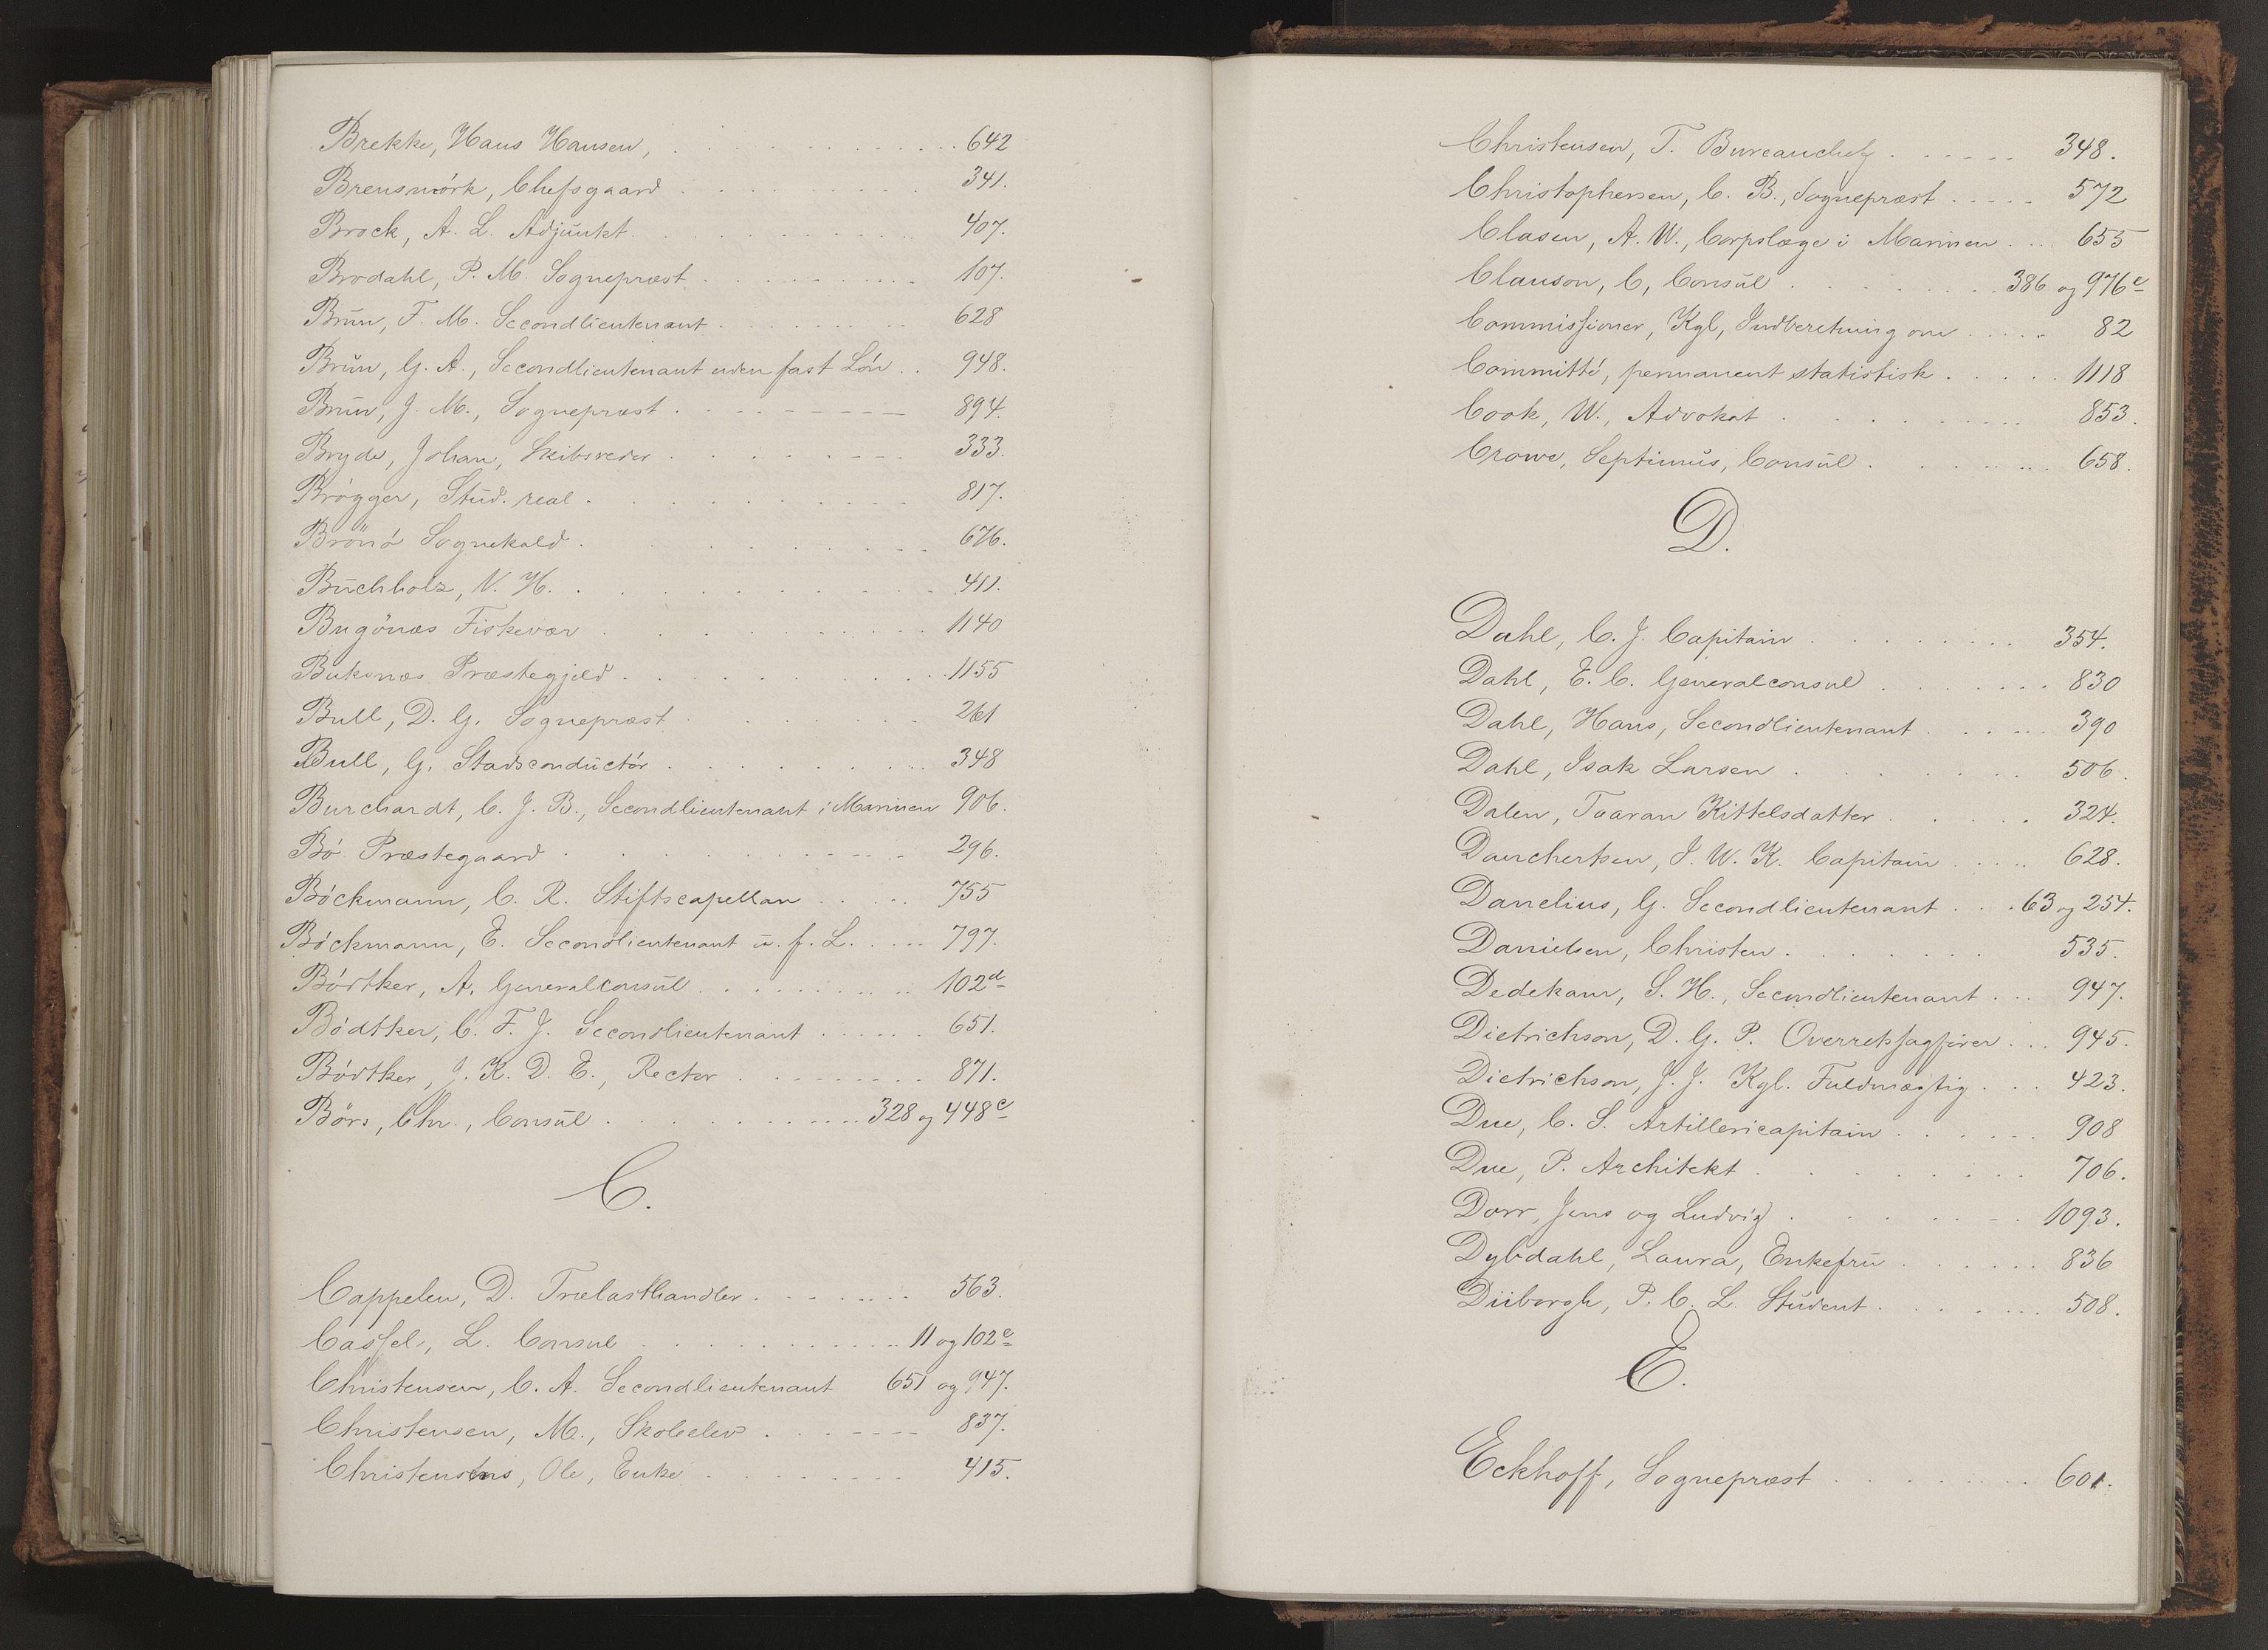 Brekke, Hans Hansen, . . . . . 642
Brensmörk, Chefsgaard . . . . . 341.
Brock, A. L. Adjunkt . . . . . 407.
Brodahl, P. M. Sognepræst . . . . . 107.
Brun, F. M. Secondlieutenant . . . . . 628
Brun, G. A., Secondlieutenant uden fast Lön . . 948.
Brun, J. M., Sognepræst . . . . . 894.
Bryde, Johan, Skibsreder . . . . . 333.
Brögger, Stud. real . . . . . 817.
Brönö Sognekald . . . . . 676.
Buchholz, V. H. . . . . . 411.
Bugönæs Fiskevær . . . . . 1140
Buksnæs Præstegjeld . . . . . 1155
Bull, D. G. Sognepræst . . . . . 261
Bull, G. Stadsconductör . . . . . 348
Burchardt, C. J. B., Secondlieutenant i Marinen 906.
Bö Præstegaard . . . . . 296.
Böckmann, C. R. Stiftscapellan . . . . . 755
Böckmann, E. Secondlieutenant u. f. L. . . . . 797.
Bödtker, A. Generalconsul . . . . . 102d
Bödtker, C. F. J. Secondlieutenant . . . . . 651.
Bödtker, J. K. D. E., Rector . . . . . 871.
Börs, Chr., Consul . . . . . 328 og 448c
C.
Cappelen, D. Trælasthandler . . . . . 563.
Cassel, L. Consul . . . . . 11 og 102c
Christensen, C. A. Secondlieutenant 651 og 947.
Christensen, M., Skoleelev . . . . . 837.
Christensens, Ole, Enke . . . . . 415.
Christensen, T. Bureauchef . . . . . 348.
Christophersen, C. B., Sognepræst . . . . . 572
Clasen, A. W., Corpslæge i Marinen . . . 655
Clauson, C, Consul . . . . . 386 og 976c
Commissioner, Kgl, Indberetning om . . . . . 82
Committé, permanent statistisk . . . . . 1118
Cook, W., Advokat . . . . . 853.
Crowe, Septimus, Consul . . . . . 658.
D.
Dahl, C. J. Capitain . . . . . 354.
Dahl, E. C. Generalconsul . . . . . 830
Dahl, Hans, Secondlieutenant . . . . . 390
Dahl, Isak Larsen . . . . . 506.
Dalen, Taaran Kittelsdatter . . . . . 324.
J. W. K. Capitain . . . . . 628.
Danelius, G. Secondlieutenant . . . 63 og 254.
Danielsen, Christen . . . . . 535.
Dedekam, S. H., Secondlieutenant . . . 947.
Dietrichson, D. G. P. Overretssagfører . . . 945.
Dietrichson, J. J. Kgl. Fuldmægtig . . . 423.
Due, C. S. Artillericapitain . . . . . 908
Due, P. Architekt . . . . . 706.
Dorr, Jens og Ludvig . . . . . 1093.
Dybdahl, Laura, Enkefru . . . . . 836
Düborgh, P. C. L. Student . . . . . 508.
E.
Eckhoff, Sognepræst . . . . . 601.